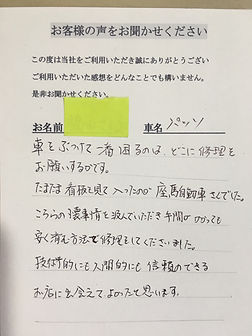 お客様の声をお聞かせください
この度は当社をご利用いただき誠にありがとうござい
ご利用いただいた感想をどんなことでも構いません。
是非お聞かせください。
お名前 車名 ベンツ
車をぶつけて一番困るのは、どこに修理を
お願いするかです。
たまたま看板を見て入ったのが座馬自動車さんでした。
こちらの懐事情を汲んでいただき手間がかかっても
安く済む方法で修理をしてくださいました。
技術的にも人間的にも信頼のできる
お店に出会えてよかったと思います。